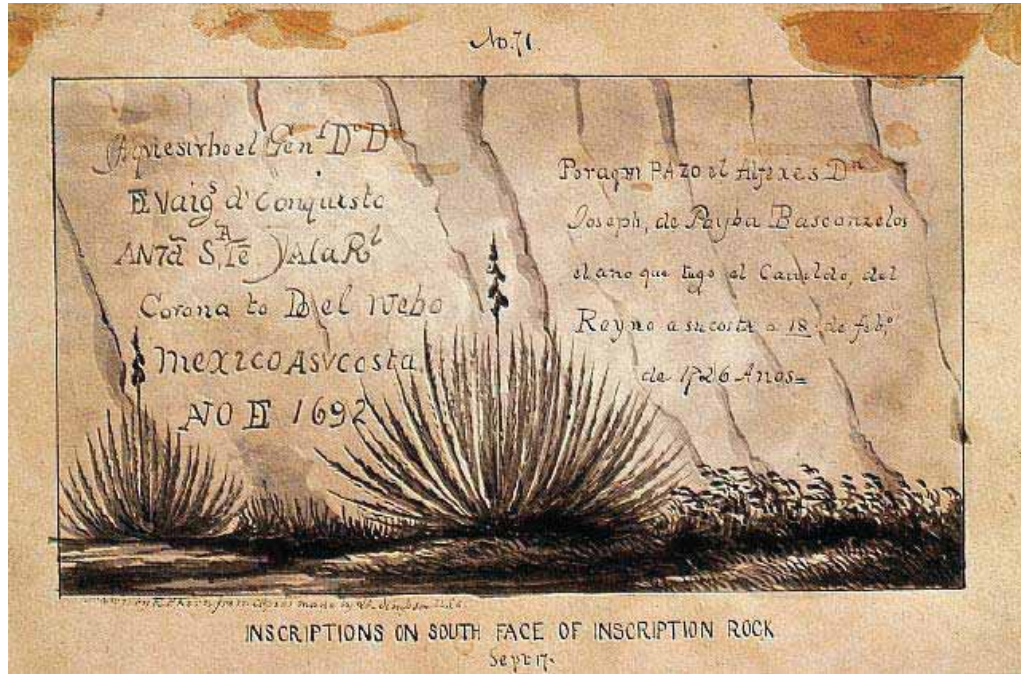 No. 71.
Aqui estubo el Genˡ Dº Dº
DE Vargˢ d' Conquisto
ANTA Sᴬ, Te y Ala Rˡ
Corona to DO el Nebo
MEXICO ASVCOSTA
AÑO DE 1692
Poraqui PAZO el Alferes Dⁿ
Joseph, de Payba Basconzelos
el ano que tugo el Cauildo, del
Reyno a su costa a 18 de febº
de 1726 Anos=
made by Lt. Simpson
INSCRIPTIONS ON SOUTH FACE OF INSCRIPTION ROCK
Sept 17.